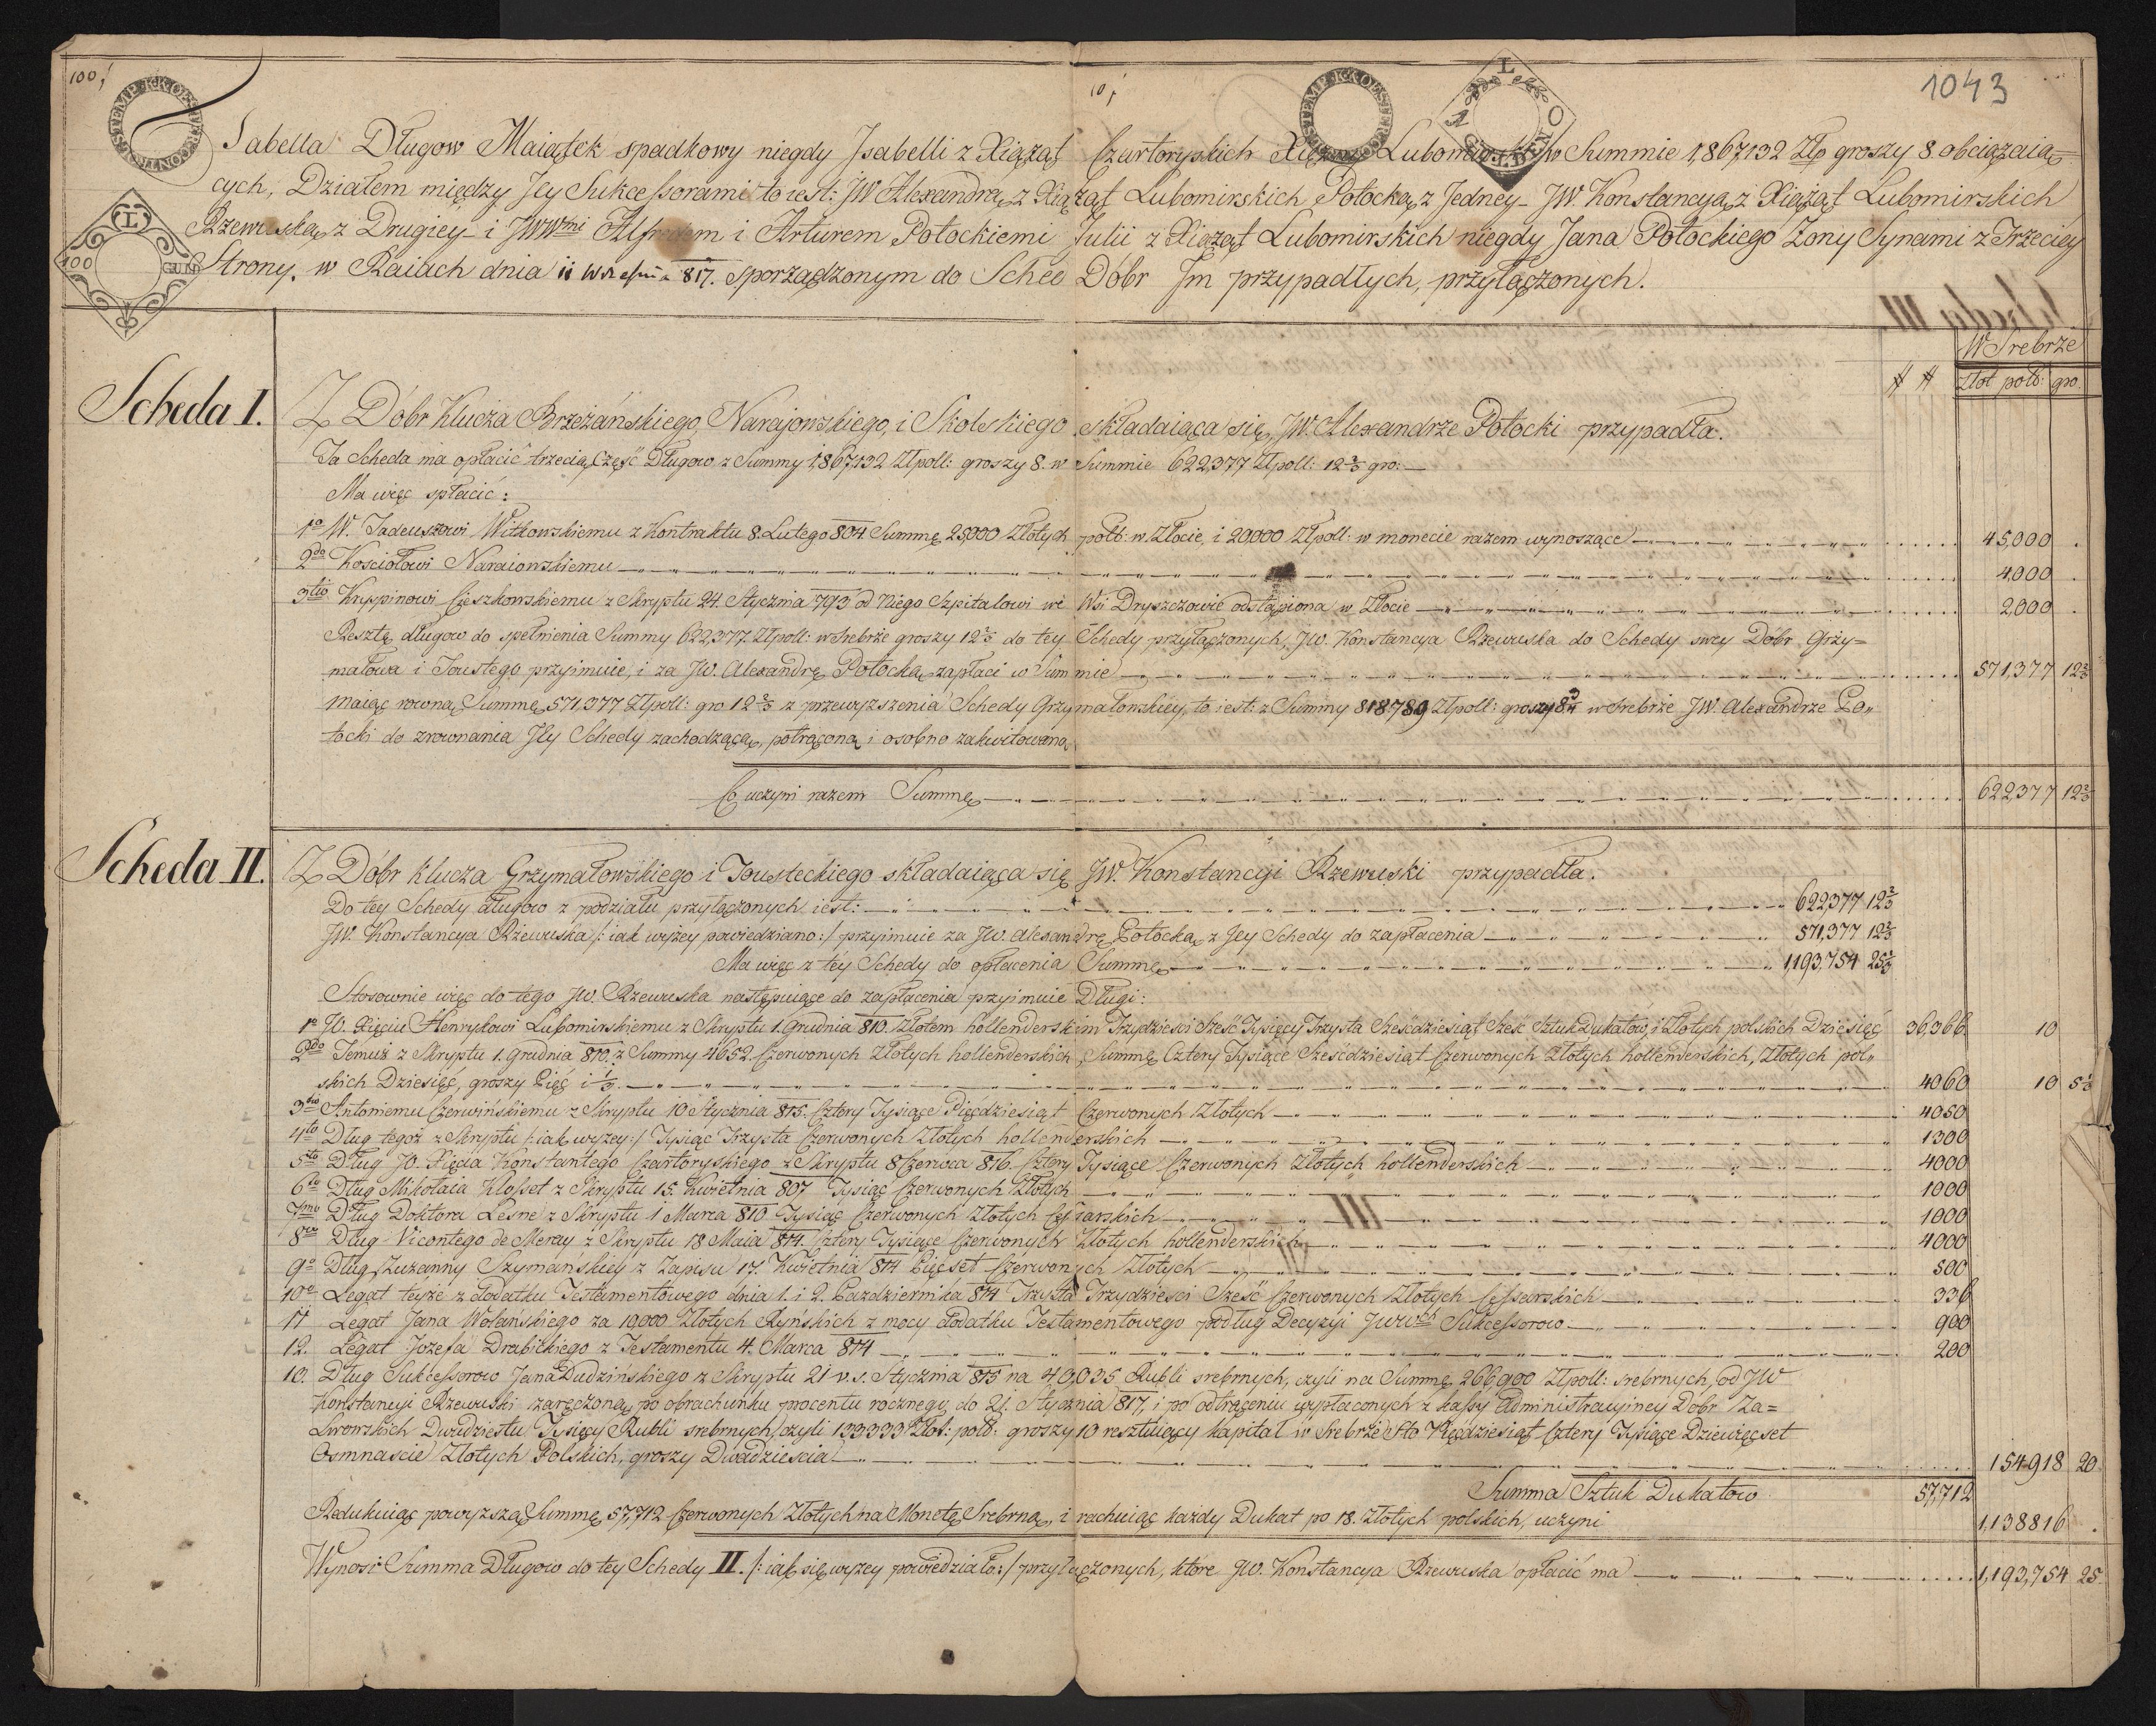 100,
10,
1043
STEMP. K.K. OEST. CONTROL
STEMP. K.K. OEST. CONTROL
L
100
GULD
L
Tabella Długow Maiątek spadkowy niegdy Jsabelli z Xiążąt Czartoryskich Lubomirskiey w Summie 1,867,132 Złp groszy 8. obciążaią=
cych, Działem między Jey Sukcessorami to iest: JW Alexandrą z Xiążąt Lubomirskich Potocką z Jedney_ JW. Konstancyą z Xiążąt Lubomirskich
Rzewuską z Drugiéy_ i JWWmi Alfredem i Arturem Potockiemi Julii z Xiążąt Lubomirskich niegdy Jana Potockiego Zony Synami z Trzeciey
Strony. w Raiach dnia 11 Września 817. sporządzonym do Sched Dóbr Jm przypadłych, przyłączonych.
W Srebrze
# #
Złot: polś: gro.
Scheda I.
Z Dóbr Klucza Brzeżańskiego, Narajowskiego, i Skolskiego składaiąca się, JW. Alexandrze Potocki przypadła.
Ta Scheda ma opłacić trzecią Część Długow z Summy 1,867,132 Złpoll: groszy 8. w Summie 622,377 Złpoll: 12⅔ gro:
Ma więc spłacić:
1o W. Tadeuszowi Witkowskiemu z Kontraktu 8. Lutego 804. Summę 25,000 Złotych polś: w Złocie, i 20,000 Złpoll: w monecie razem wynoszące 45,000 .
2do Kosciołowi Naraiowskiemu 4,000 .
3tio Kryppinowi Cieszkowskiemu z Skryptu 24. Stycznia 793 od Niego Szpitalowi we Wsi Dryszczowie odstąpiona w Złocie 2,000 .
Resztę długow do spełnienia Summy 622,377. Złpoll: w Srebrze groszy 12⅔ do tey Schedy przyłączonych, JW. Konstancya Rzewuska do Schedy swey Dóbr Grzy=
małowa i Toustego przyimuie, i za JW. Alexandrę Potocką zapłaci w Summie 571,377 12⅔
Maiąc rowną Summę 571.377 Złpoll: gro 12⅔ z przewyzszenia Schedy Grzymałowskiey, to iest: z Summy 818.789 Złpoll: groszy w Srebrze JW. Alexandrze Po„
tocki do zrownania Jey Schedy zachodzącą, potrąconą i osobno zakwitowaną
Co uczyni razem Summę 622,377 12⅔
Scheda II.
Z Dóbr klucza Grzymałowskiego i Tousteckiego składaiąca się JW. Konstancyi Rzewuski przypadła.
Do tey Schedy długow z podziału przyłączonych iest: 622,377 12⅔
JW. Konstancya Rzewuska /: iak wyżey powiedziano :/ przyimuie za JW. Alexandrę Potocką z Jey Schedy do zapłacenia 571,377 12⅔
Ma więc z téy Schedy do opłacenia Summę 1,193,754 25⅓
Stosownie więc do tego JW. Rzewuska następuiące do zapłacenia przyimuie Długi:
1o JO. Xięciu Henrykowi Lubomirskiemu z Skryptu 1. Grudnia 810. Złotem hollenderskim Trzydzieści Sześć Tysięcy Trzysta Sześćdziesiąt Sześć Sztuk Dukatów, i Złotych polskich Dziesięć 36,366 10
2do Temuż z Skryptu 1. Grudnia 810. z Summy 4652. Czerwonych Złotych hollenderskich, Summę Cztery Tysiące Sześćdziesiąt Czerwonych Złotych hollenderskich, Złotych pol„
skich Dziesięć, groszy Pięć i ⅓. 4060 10 5⅓
3tio Antoniemu Czerwińskiemu z Skryptu 10 Stycznia 815. Cztery Tysiące Pięćdziesiąt Czerwonych Złotych 4050
4to Dług tegoż z Skryptu /: iak wyzey :/ Tysiąc Trzysta Czerwonych Złotych hollenderskich 1300
5to Dług JO. Xięcia Konstantego Czartoryskiego z Skryptu 8 Czerwca 816. Cztery Tysiące Czerwonych Złotych hollenderskich 4000
6to Dług Mikołaia Klosset z Skryptu 15. Kwietnia 807 Tysiąc Czerwonych Złotych 1000
7mo Dług Doktora Lesne z Skryptu 1 Marca 810 Tysiąc Czerwonych Złotych Cesarskich 1000
8vo Dług Vicontego de Meray z Skryptu 18 Maia 814. Cztery Tysiące Czerwonych Złotych hollenderskich 4000
9o Dług Zuzanny Szymańskiey z Zapisu 17. Kwietnia 814 Pięćset Czerwonych Złotych 500
10o Legat teyże z dodatku Testamentowego dnia 1. i 2. Pazdziernika 814 Trzysta Trzydzieści Sześć Czerwonych Złotych Cessarskich 336
11 Legat Jana Wolańskiego za 10,000 Złotych Ryńskich z mocy dodatku Testamentowego podług Decyzyi Sukcessorow 900
12. Legat Jozefa Drabickiego z Testamentu 4. Marca 814 200
10. Dług Sukcessorow Jana Dudzińskiego z Skryptu 21 v.s. Stycznia 815 na 40,035 Rubli srebrnych, czyli na Summę 266,900 Złpoll: srebrnych, od JW
Konstancyi Rzewuski zaręczoną, po obrachunku procentu rocznego do 21. Stycznia 817, i po odtrąceniu wypłaconych z kassy Administracyiney Dobr Za=
Lwowskich Dwudziestu Tysięcy Rubli srebrnych, czyli 133333 Złot: polś: groszy 10 resztuiący kapitał w Srebrze Sto Pięćdziesiąt Cztery Tysiące Dziewięćset
Osmnaście Złotych Polskich, groszy Dwadzieścia 154,918 20
Summa Sztuk Dukatow 57,712
Redukuiąc powyzszą Summę 57,712 Czerwonych Złotych na Monetę Srebrną, i rachuiąc każdy Dukat po 18. Złotych polskich, uczyni 1,138816 .
Wynosi Summa Długow do tey Schedy II. /: iak się wyzey powiedziało :/ przyłączonych, które JW. Konstancya Rzewuska opłacić ma 1,193,754 25